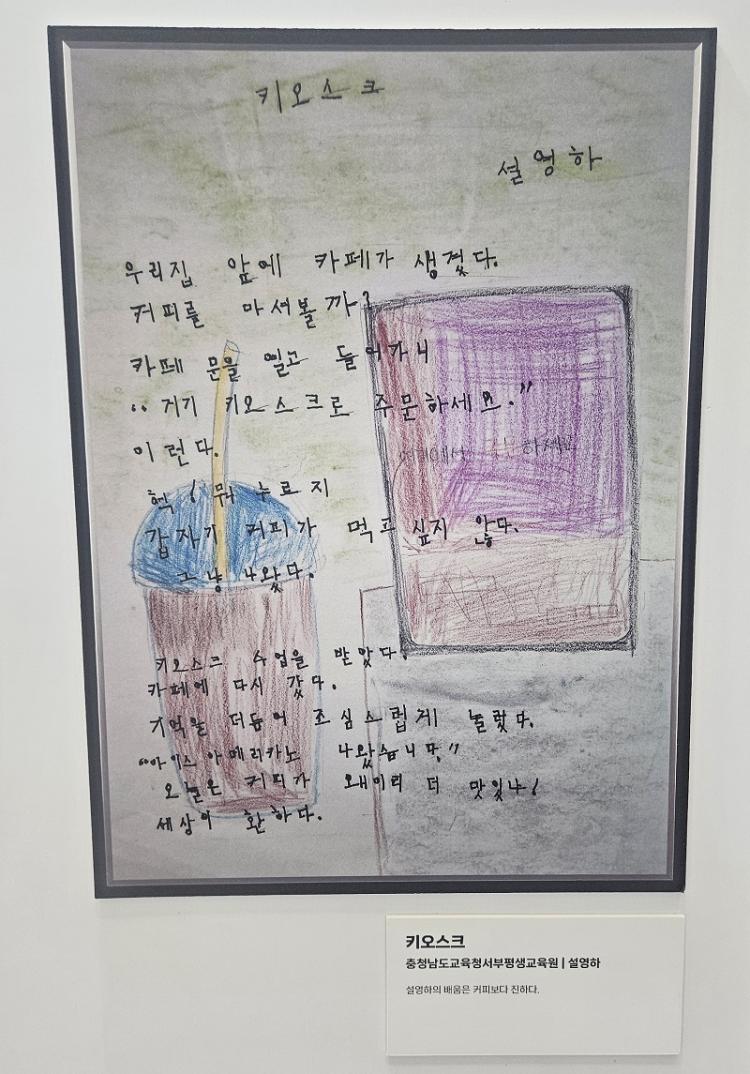 키오스크
설영하
우리집 앞에 카페가 생겼다.
커피를 마셔볼까?
카페 문을 열고 들어가니
"거기 키오스크로 주문하세요."
이런다.
헉! 뭐 누르지
갑자기 커피가 먹고 싶지 않다.
그냥 나왔다.
키오스크 수업을 받았다.
카페에 다시 갔다.
기억을 더듬어 조심스럽게 눌렀다.
"아이스 아메리카노 나왔습니다."
오늘은 커피가 왜이리 더 맛있나!
세상이 환하다.
하세요
키오스크
충청남도교육청서부평생교육원 | 설영하
설영하의 배움은 커피보다 진하다.